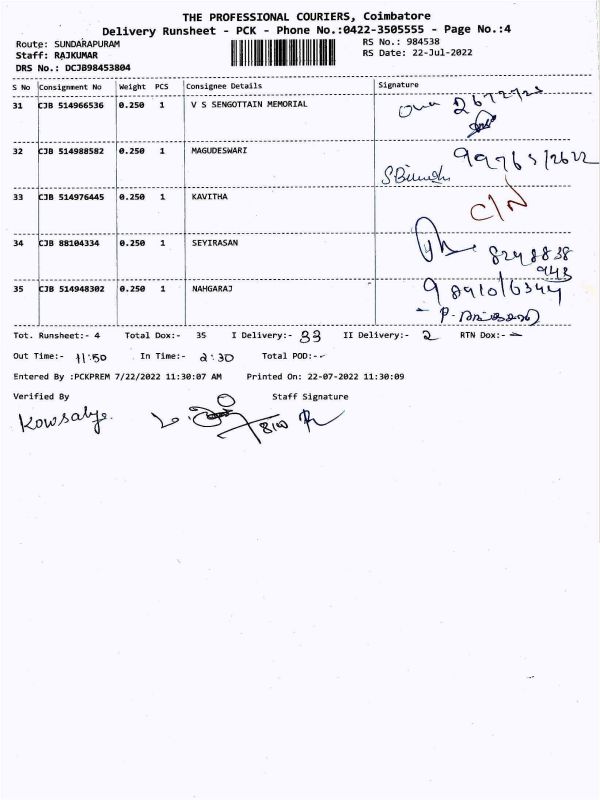 THE PROFESSIONAL COURIERS, Coimbatore
Delivery Runsheet - PCK - Phone No.:0422-3505555 - Page No.:4
Route: SUNDARAPURAM RS No.: 984538
Staff: RAJKUMAR RS Date: 22-Jul-2022
DRS No.: DCJB98453804
S No Consignment No Weight PCS Consignee Details Signature
31 CJB 514966536 0.250 1 V S SENGOTTAIN MEMORIAL
32 CJB 514988582 0.250 1 MAGUDESWARI
33 CJB 514976445 0.250 1 KAVITHA C/N
34 CJB 88104334 0.250 1 SEYIRASAN
35 CJB 514948302 0.250 1 NAHGARAJ
Tot. Runsheet:- 4 Total Dox:- 35 I Delivery:- 33 II Delivery:- 2 RTN Dox:- -
Out Time:- 11:50 In Time:- 2:30 Total POD:--
Entered By :PCKPREM 7/22/2022 11:30:07 AM Printed On: 22-07-2022 11:30:09
Verified By Staff Signature